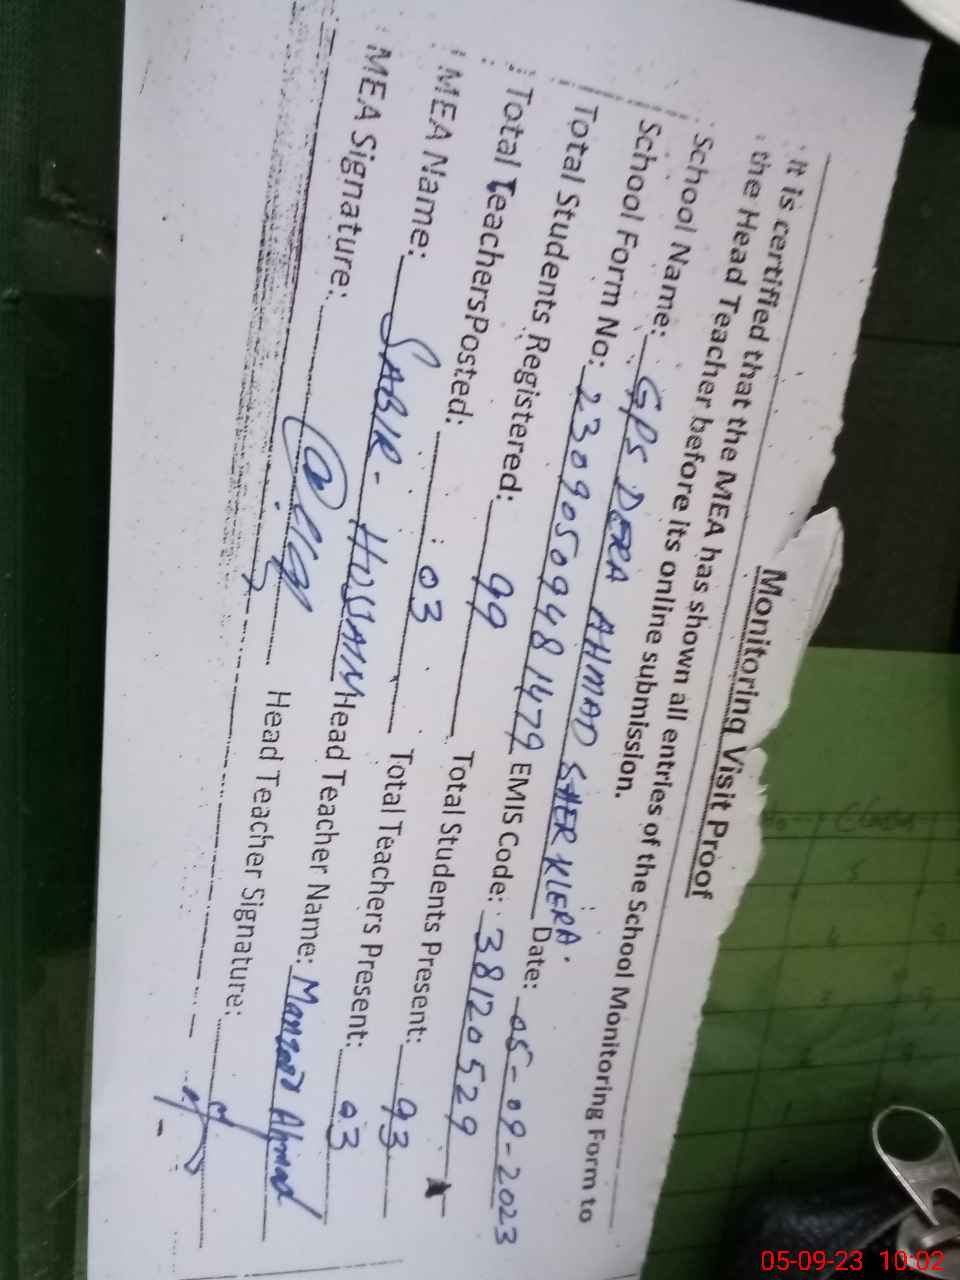 Monitoring Visit Proof
It is certified that the MEA has shown all entries of the School Monitoring Form to
the Head Teacher before its online submission.
School Name: GPS DERA AHMAD SHER KLERA. Date: 05-09-2023
School Form No: 2309050948 1479 EMIS Code: 38120529
Total Students Registered: 99 Total Students Present: 93
Total TeachersPosted: 03 Total Teachers Present: 03
MEA Name: SABIR - HUSSAIN Head Teacher Name: Manzoor Ahmad
MEA Signature: Head Teacher Signature:
05-09-23 10:02